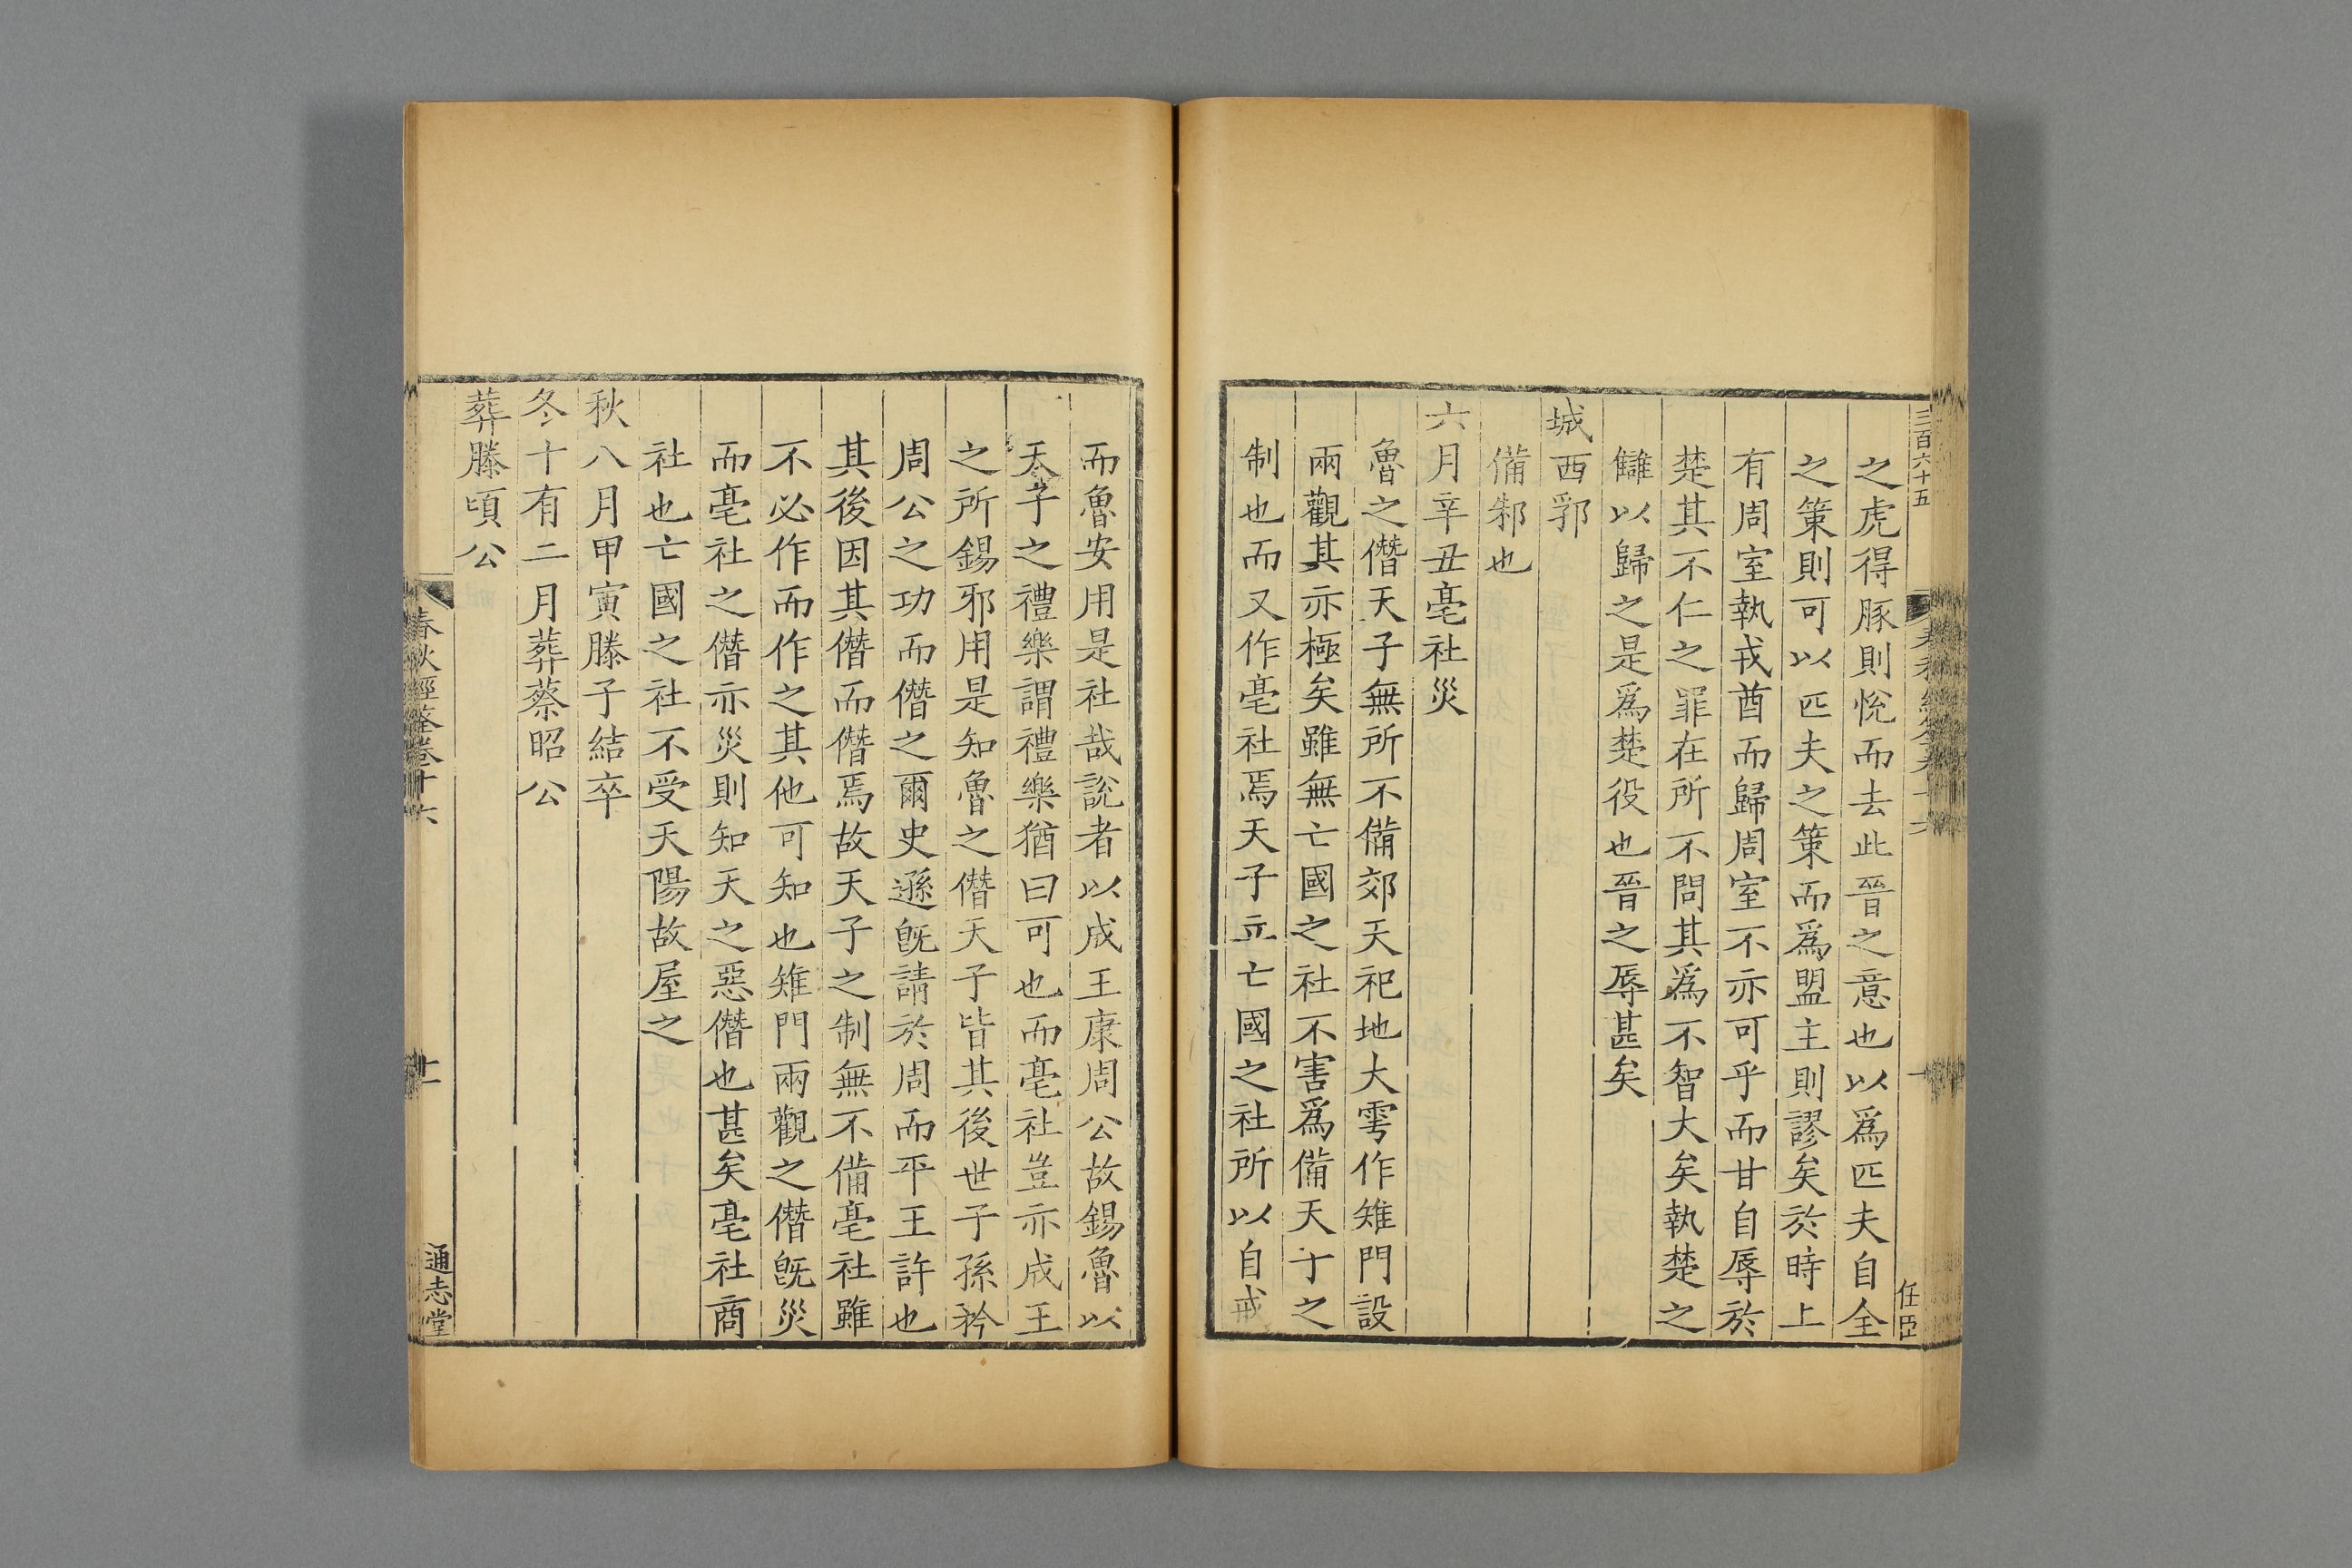 三百六十五
任臣
之虎得豚則悅而去此晉之意也以爲匹夫自全
之策則可以匹夫之策而爲盟主則謬矣於時上
有周室執戎酋而歸周室不亦可乎而甘自辱於
楚其不仁之罪在所不問其爲不智大矣執楚之
讎以歸之是爲楚役也晉之辱甚矣
城西郛
備邾也
六月辛丑亳社災
魯之僭天子無所不備郊天祀地大雩作雉門設
兩觀其亦極矣雖無亡國之社不害爲備天子之
制也而又作亳社焉天子立亡國之社所以自戒
而魯安用是社哉說者以成王康周公故錫魯以
天子之禮樂謂禮樂猶曰可也而亳社豈亦成王
之所錫邪用是知魯之僭天子皆其後世子孫矜
周公之功而僭之爾史遜旣請於周而平王許也
其後因其僭而僭焉故天子之制無不備亳社雖
不必作而作之其他可知也雉門兩觀之僭旣災
而亳社之僭亦災則知天之惡僭也甚矣亳社商
社也亡國之社不受天陽故屋之
秋八月甲寅滕子結卒
冬十有二月葬蔡昭公
葬滕頃公
春秋經筌卷十六
十一
通志堂